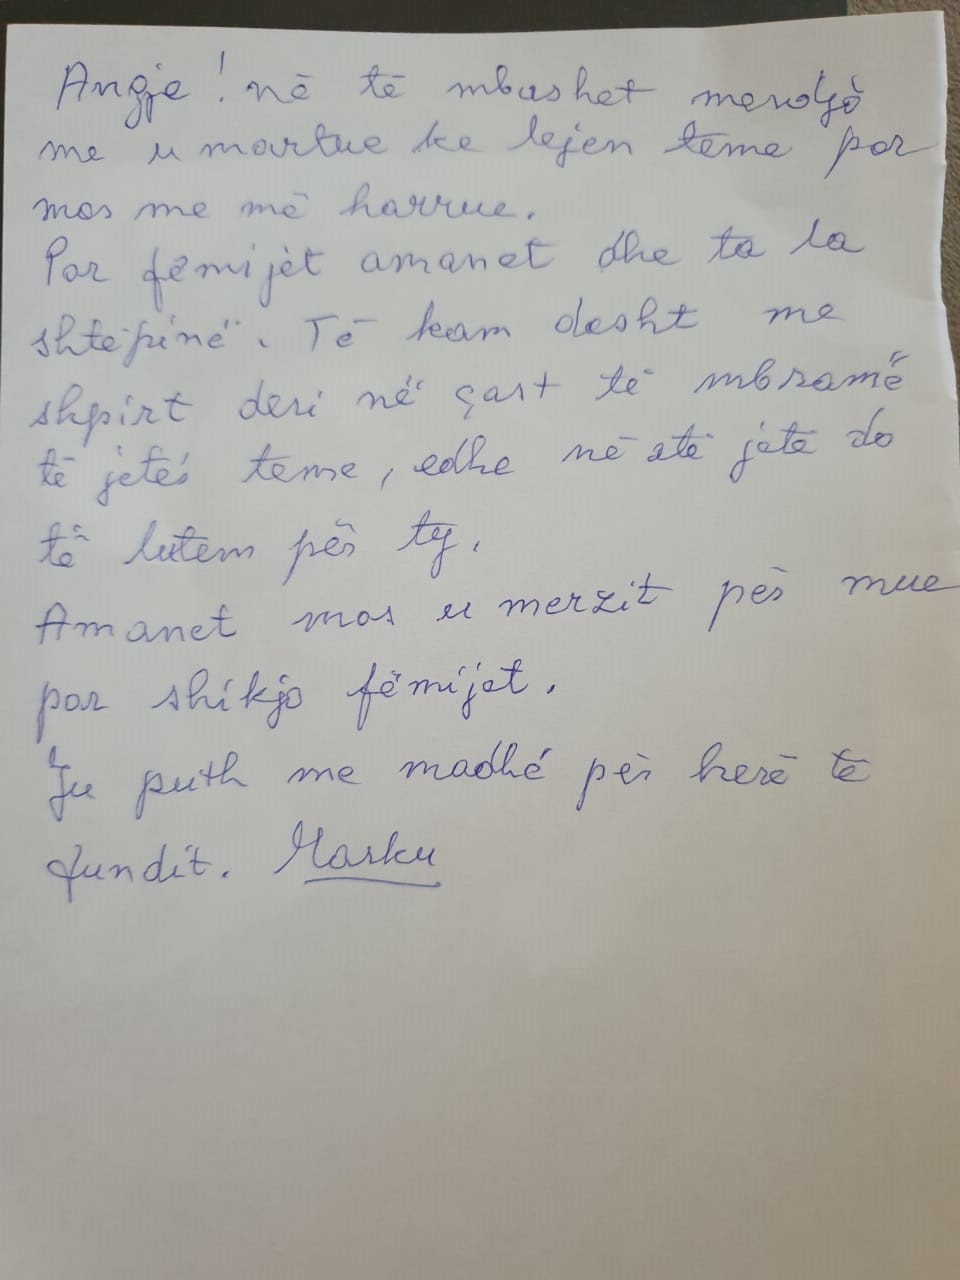 Angje! në të mbushet mendjë
me u martue ke lejen teme por
mos me më harrue.
Por fëmijët amanet dhe ta la
shtëpinë. Të kam dasht me
shpirt deri në çast të mbramë
të jetës teme, edhe në atë jetë do
të lutem për ty.
Amanet mos u merzit për mue
por shikjo fëmijet.
Ju puth me madhé për herë të
fundit. Marku